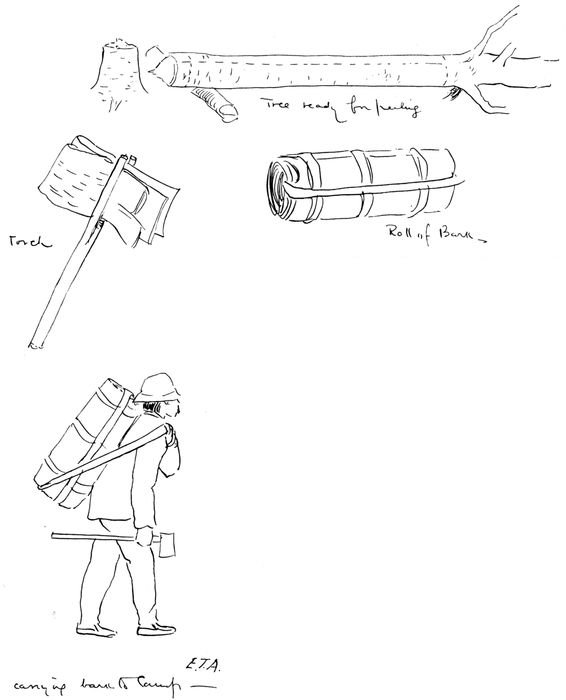 Tree ready for peeling
Torch
Roll of Bark
E.T.A.
carrying bark to Camp —